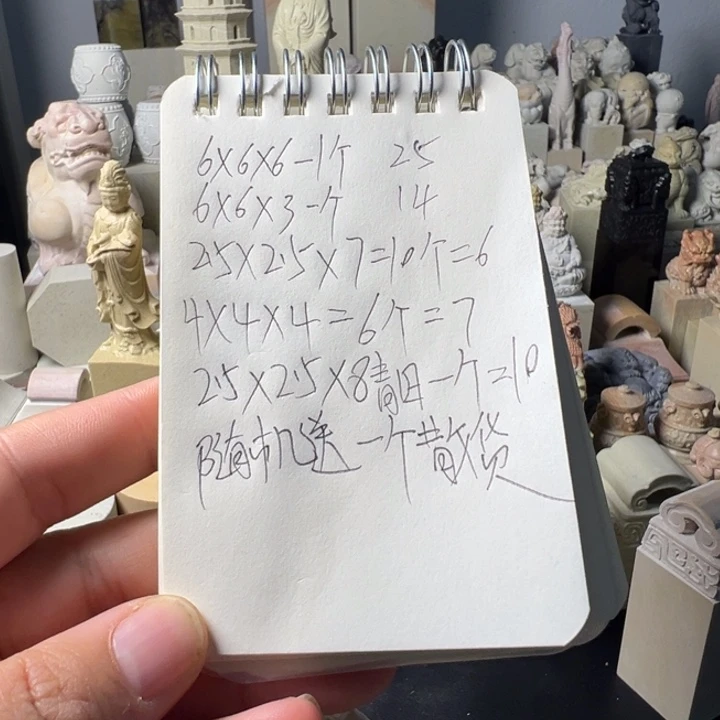 6×6×6-1个 25
6×6×3-个 14
2.5×2.5×7=10个=6
4×4×4=6个=7
2.5×2.5×8青田一个=10
随机送一个散货